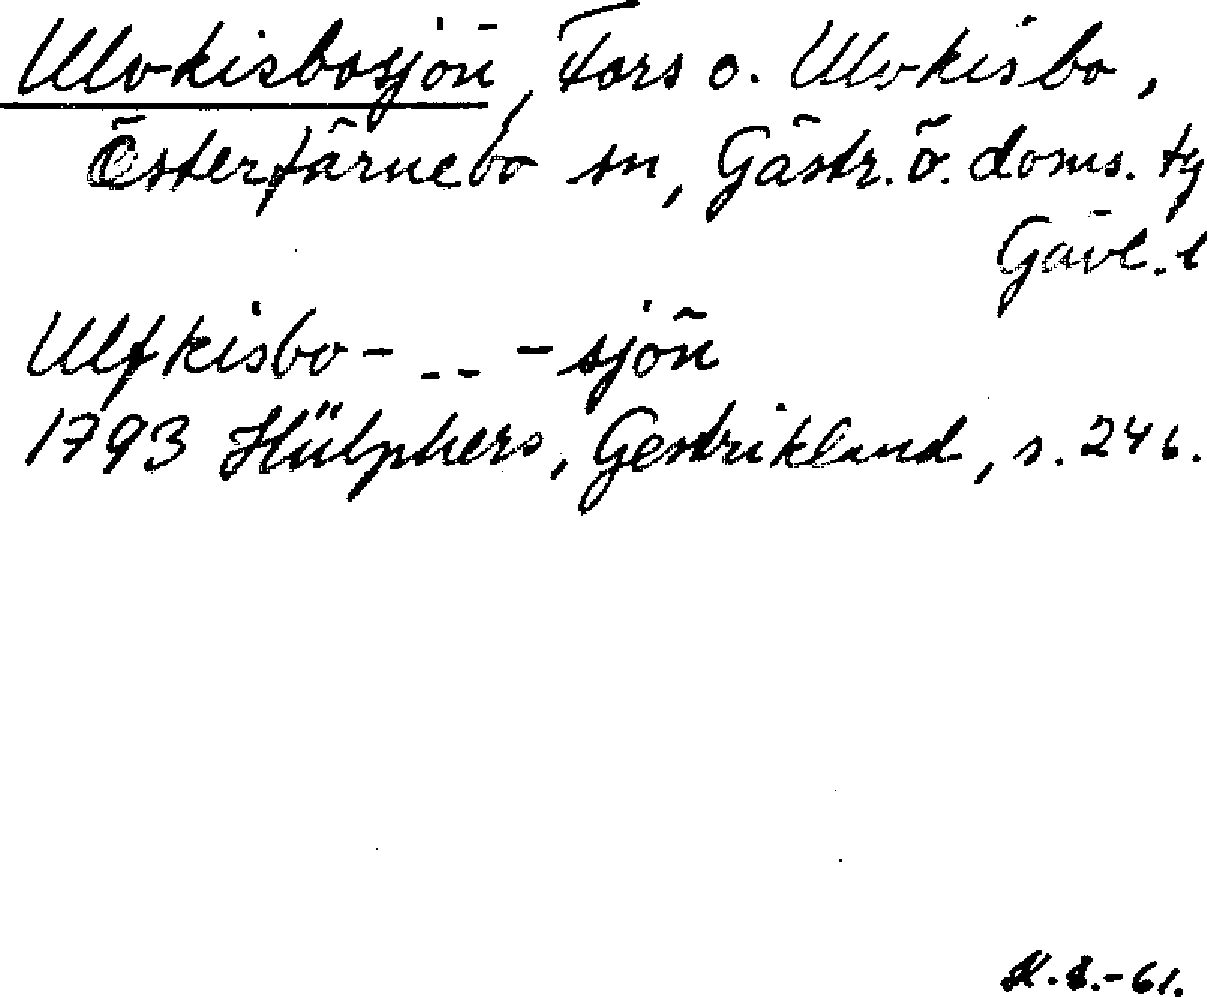 Ulvkisbosjön, Fors o. Ulvkisbo,
Österfärnebo sn, Gästr. ö. doms. tg
Gävl. l
Ulfkisbo- -- -sjön
1793 Hülphers, Gestrikland, s. 246.
-61.